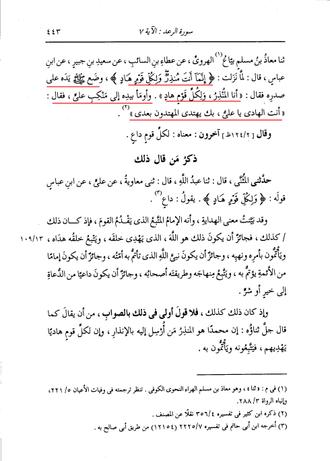 سورة الرعد : الآية ٧
٤٤٣
ثنا معاذُ بنُ مسلمٍ بَيَّاعُ(١) الهرويِّ ، عن عطاءِ بنِ السائبِ ، عن سعيدِ بنِ جبيرٍ ، عن ابنِ
عباسٍ ، قال : لمَّا نزَلت : ﴿ إِنَّمَا أَنتَ مُنذِرٌ وَلِكُلِّ قَوْمٍ هَادٍ ﴾ ، وضَع ﷺ يدَه على
صدرِه فقال : « أنا المُنْذِرُ ، وَلِكُلِّ قَوْمٍ هادٍ » . وأومَأ بيدِه إلى مَنْكِبِ عليٍّ ، فقال :
« أنت الهادى يا عليُّ ، بك يهتدى المهتدون بعدى »(٢) .
وقال [١٢٤/٢ظ] آخرون : معناه : لكلِّ قومٍ داعٍ .
ذكرُ مَن قال ذلك
حدَّثنى المُثَنَّى ، قال : ثنا عبدُ اللَّهِ ، قال : ثنى معاويةُ ، عن عليٍّ ، عن ابنِ عباسٍ
قولَه : ﴿ وَلِكُلِّ قَوْمٍ هَادٍ ﴾ . يقولُ : داعٍ(٣) .
وقد بَيَّنتُ معنى الهدايةِ ، وأنه الإمامُ المُتَّبَعُ الذى يَقْدُمُ القومَ . فإذ كان ذلك
١٠٩/١٣ / كذلك ، فجائزٌ أن يكونَ ذلك هو اللَّهَ ، الذى يَهْدِى خلقَه ، ويَتَّبِعُ خلقُه هُداه ،
ويَأْتَمُّون بأمرِه ونهيِه ، وجائزٌ أن يكونَ نبىَّ اللَّهِ الذى تَأْتَمُّ به أمتُه ، وجائزٌ أن يكونَ إمامًا
من الأئمةِ يُؤتَمُّ به ، ويَتَّبِعُ مِنهاجَه وطريقتَه أصحابُه ، وجائزٌ أن يكونَ داعيًا من الدُّعاةِ
إلى خيرٍ أو شرٍّ .
وإذ كان ذلك كذلك ، فلا قولَ أولى فى ذلك بالصوابِ ، من أن يقالَ كما
قال جلَّ ثناؤُه : إن محمدًا هو المنذِرُ مَن أُرسِل إليه بالإنذارِ ، وإن لكلِّ قومٍ هاديًا
يَهْدِيهم ، فيَتَّبِعونه ويَأْتَمُّون به .
(١) فى م : « ثنا » ، وهو معاذ بن مسلم الهراء النحوى الكوفى . تنظر ترجمته فى وفيات الأعيان ٢٢١/٥ ،
وإنباه الرواة ٢٨٨/٣ .
(٢) ذكره ابن كثير فى تفسيره ٣٥٦/٤ نقلًا عن المصنف .
(٣) أخرجه ابن أبى حاتم فى تفسيره ٢٢٢٥/٧ (١٢١٥٤) من طريق أبى صالح به .